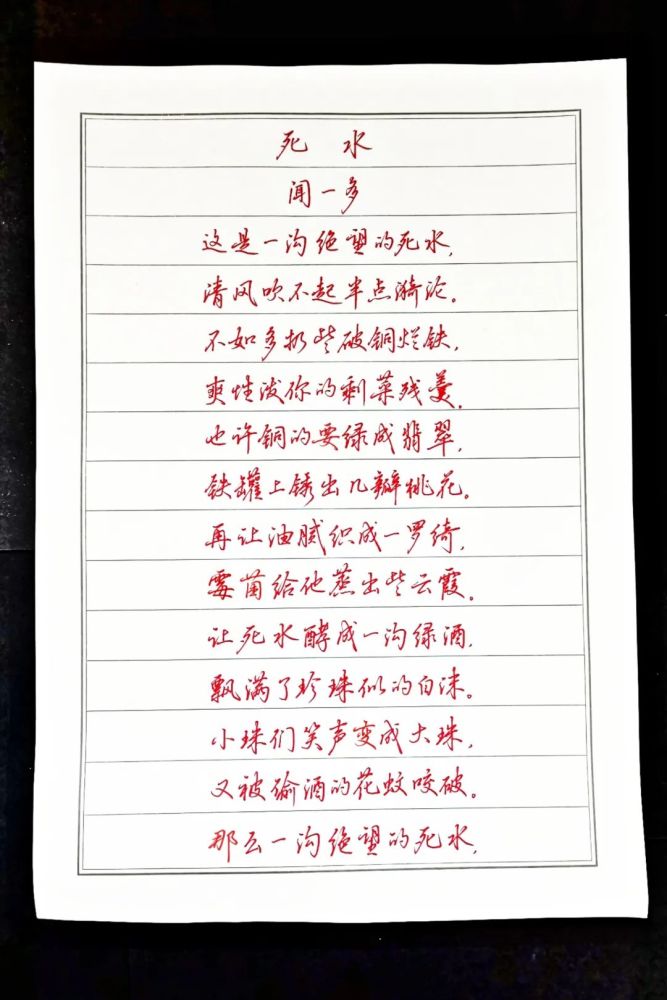 死 水
闻一多
这是一沟绝望的死水,
清风吹不起半点漪沦。
不如多扔些破铜烂铁,
爽性泼你的剩菜残羹。
也许铜的要绿成翡翠,
铁罐上锈出几瓣桃花。
再让油腻织成一罗绮,
霉菌给他蒸出些云霞。
让死水酵成一沟绿酒,
飘满了珍珠似的白沫。
小珠们笑声变成大珠,
又被偷酒的花蚊咬破。
那么一沟绝望的死水,